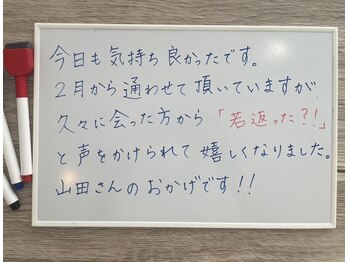 今日も気持ち良かったです。
2月から通わせて頂いていますが
久々に会った方から「若返った?!」
と声をかけられて嬉しくなりました。
山田さんのおかげです!!